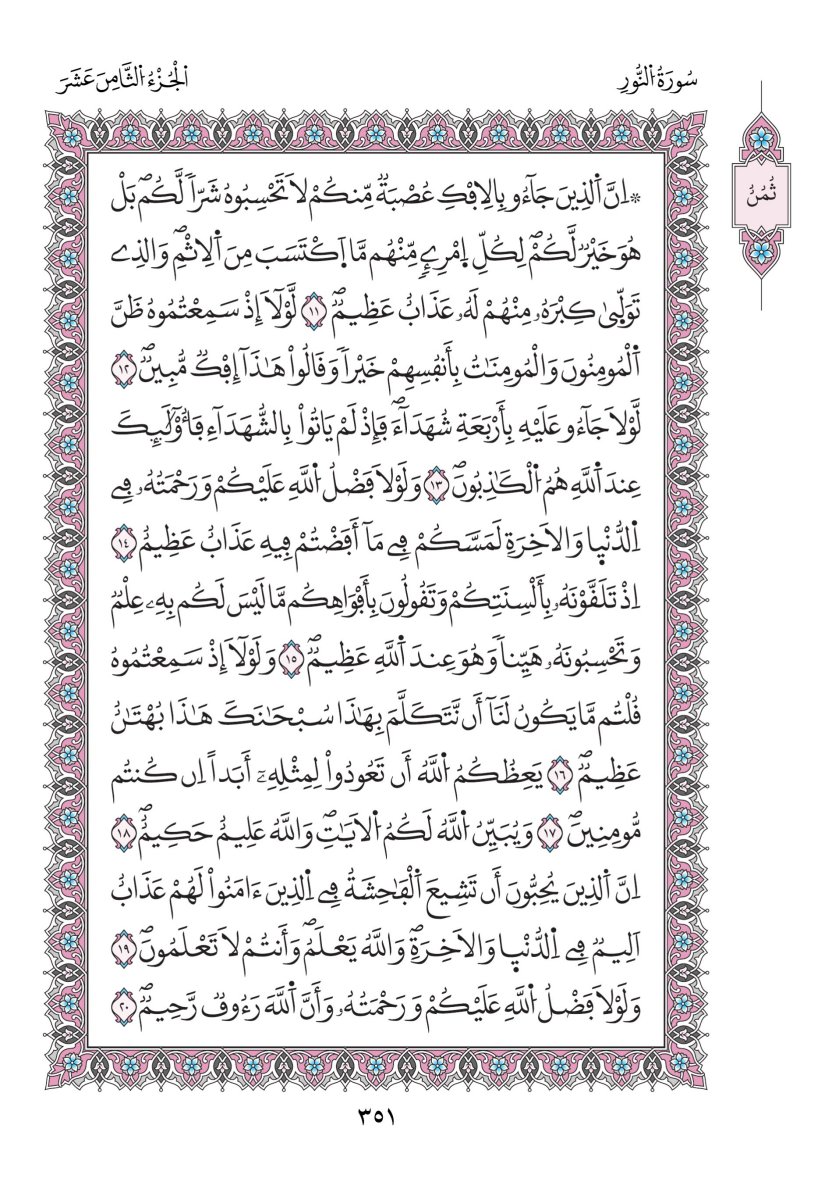 سُورَةُ النُّورِ
الْجُزْءُ الثَّامِنَ عَشَرَ
ثُمُنُ
*اِنَّ اَ۬لذِينَ جَآءُو بِالِافْكِ عُصْبَةٞ مِّنكُمْ لَا تَحْسِبُوهُ شَرّاٗ لَّكُمۖ بَلْ
هُوَ خَيْرٞ لَّكُمْۖ لِكُلِّ اِ۪مْرِےٕٖ مِّنْهُم مَّا اَ۪كْتَسَبَ مِنَ اَ۬لِاثْمِۖ وَالذِے
تَوَلّ۪يٰ كِبْرَهُۥ مِنْهُمْ لَهُۥ عَذَابٌ عَظِيمٞۖ ١١ لَّوْلَآ إِذْ سَمِعْتُمُوهُ ظَنَّ
اَ۬لْمُومِنُونَ وَالْمُومِنَٰتُ بِأَنفُسِهِمْ خَيْراٗ وَقَالُواْ هَٰذَآ إِفْكٞ مُّبِينٞۖ ١٢
لَّوْلَا جَآءُو عَلَيْهِ بِأَرْبَعَةِ شُهَدَآءَۖ فَإِذْ لَمْ يَاتُواْ بِالشُّهَدَآءِ فَأُوْلَٰٓئِكَ
عِندَ اَ۬للَّهِ هُمُ اُ۬لْكَٰذِبُونَۖ ١٣ وَلَوْلَا فَضْلُ اُ۬للَّهِ عَلَيْكُمْ وَرَحْمَتُهُۥ فِے
اِ۬لدُّنْي۪ا وَالَاخِرَةِ لَمَسَّكُمْ فِے مَآ أَفَضْتُمْ فِيهِ عَذَابٌ عَظِيمٌ ١٤
اِذْ تَلَقَّوْنَهُۥ بِأَلْسِنَتِكُمْ وَتَقُولُونَ بِأَفْوَاهِكُم مَّا لَيْسَ لَكُم بِهِۦ عِلْمٞ
وَتَحْسِبُونَهُۥ هَيِّناٗ وَهُوَ عِندَ اَ۬للَّهِ عَظِيمٞۖ ١٥ وَلَوْلَآ إِذْ سَمِعْتُمُوهُ
قُلْتُم مَّا يَكُونُ لَنَآ أَن نَّتَكَلَّمَ بِهَٰذَا سُبْحَٰنَكَ هَٰذَا بُهْتَٰنٌ
عَظِيمٞۖ ١٦ يَعِظُكُمُ اُ۬للَّهُ أَن تَعُودُواْ لِمِثْلِهِۦٓ أَبَداً اِن كُنتُم
مُّومِنِينَۖ ١٧ وَيُبَيِّنُ اُ۬للَّهُ لَكُمُ اُ۬لَايَٰتِۖ وَاللَّهُ عَلِيمٌ حَكِيمٌۖ ١٨
اِنَّ اَ۬لذِينَ يُحِبُّونَ أَن تَشِيعَ اَ۬لْفَٰحِشَةُ فِے اِ۬لذِينَ ءَامَنُواْ لَهُمْ عَذَابٌ
اَلِيمٞ فِے اِ۬لدُّنْي۪ا وَالَاخِرَةِۖ وَاللَّهُ يَعْلَمُۖ وَأَنتُمْ لَا تَعْلَمُونَۖ ١٩
وَلَوْلَا فَضْلُ اُ۬للَّهِ عَلَيْكُمْ وَرَحْمَتُهُۥ وَأَنَّ اَ۬للَّهَ رَءُوفٞ رَّحِيمٞۖ ٢٠
٣٥١